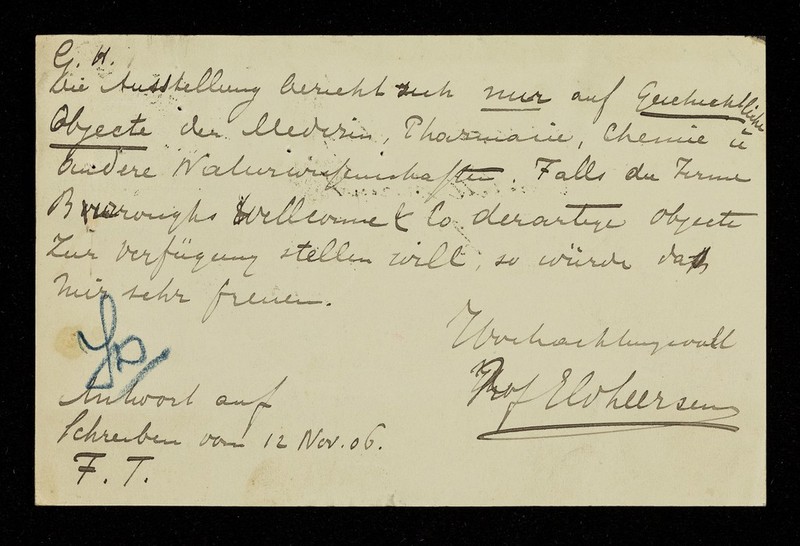 G. H.
Die Ausstellung bezieht sich nur auf Geschichtliche
Objecte der Medizin, Pharmacie, Chemie u
andere Naturwissenschaften. Falls die Firma
Burroughs Wellcome & Co derartige Objecte
zur Verfügung stellen will, so würde das
mir sehr freuen.
Hochachtungsvoll
Prof
Antwort auf
Schreiben vom 12 Nov. 06.
F. T.